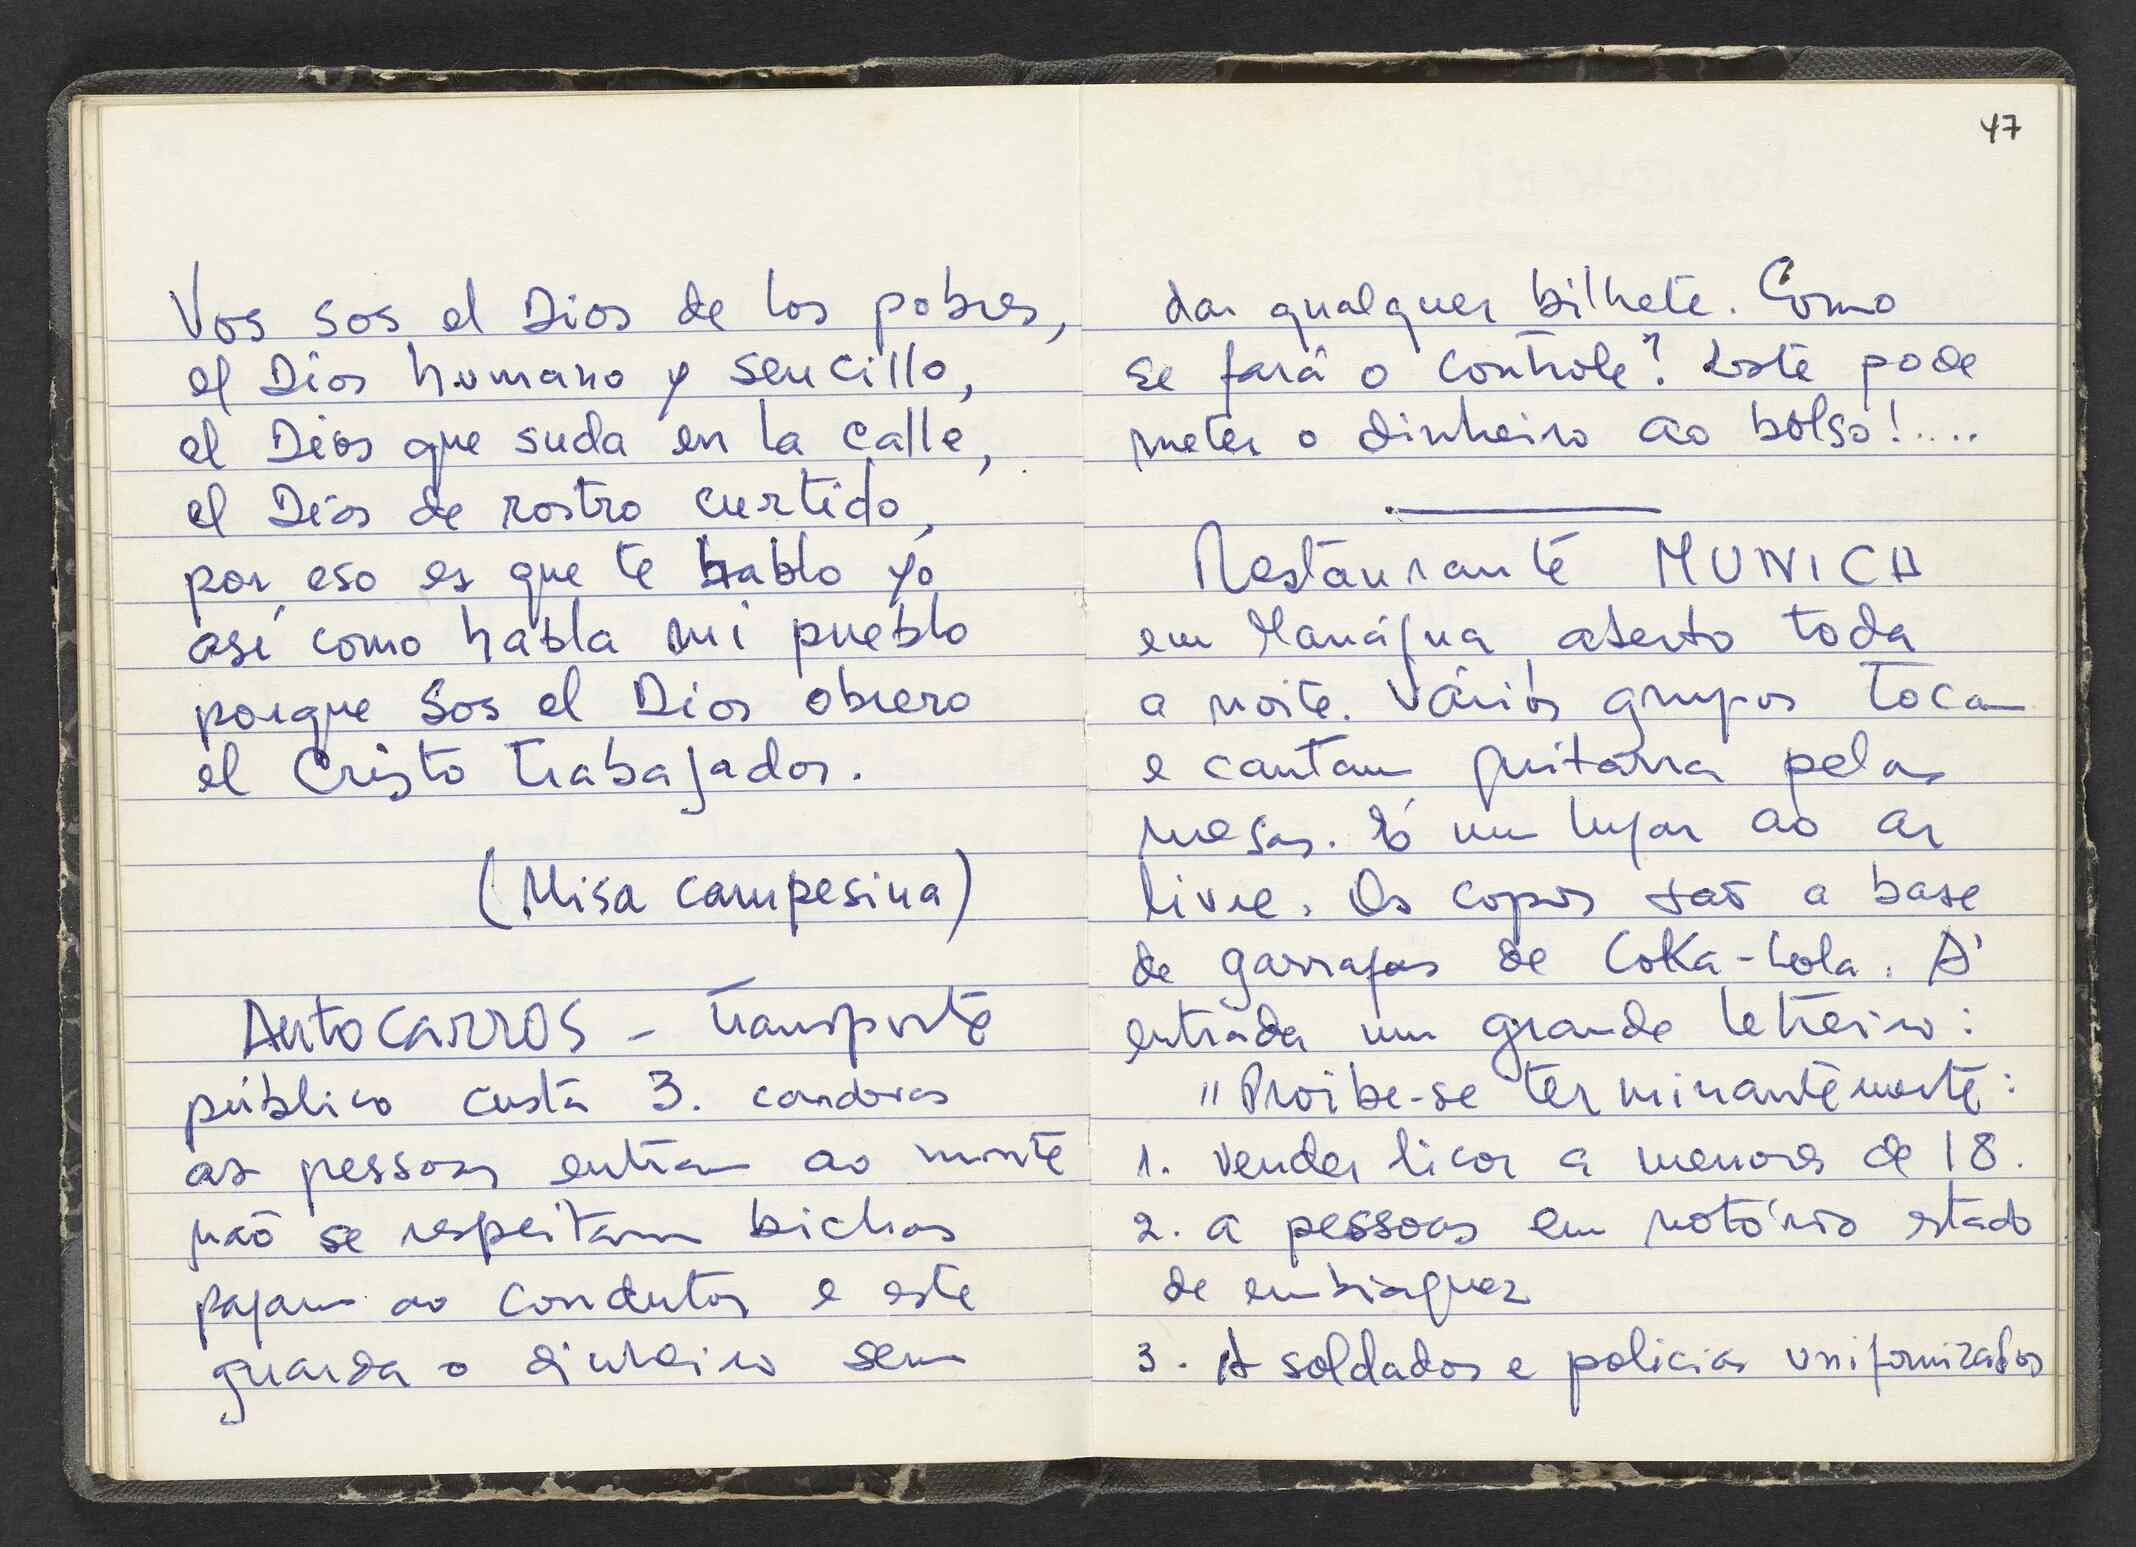 Vos sos el Dios de los pobres,
el Dios humano y sencillo,
el Dios que suda en la calle,
el Dios de rostro curtido,
por eso es que te hablo yo
así como habla mi pueblo
porque sos el Dios obrero
el Cristo trabajador.
(Misa campesina)
AutocARROS - Transporte
público custa 3. cordovas
as pessoas entram ao monte
não se respeitam bichas
pagam ao condutor e este
guarda o dinheiro sem
47
dar qualquer bilhete. Como
se fará o controle? Este pode
meter o dinheiro ao bolso!....
Restaurante MUNICH
em Manágua aberto toda
a noite. Vários grupos tocam
e cantam guitarra pelas
mesas. É um lugar ao ar
livre. Os copos são a base
de garrafas de Coka-Cola. À
entrada um grande letreiro:
"Proibe-se terminantemente:
1. vender licor a menores de 18.
2. a pessoas em notório estado
de embriaguez
3. A soldados e policias uniformizados